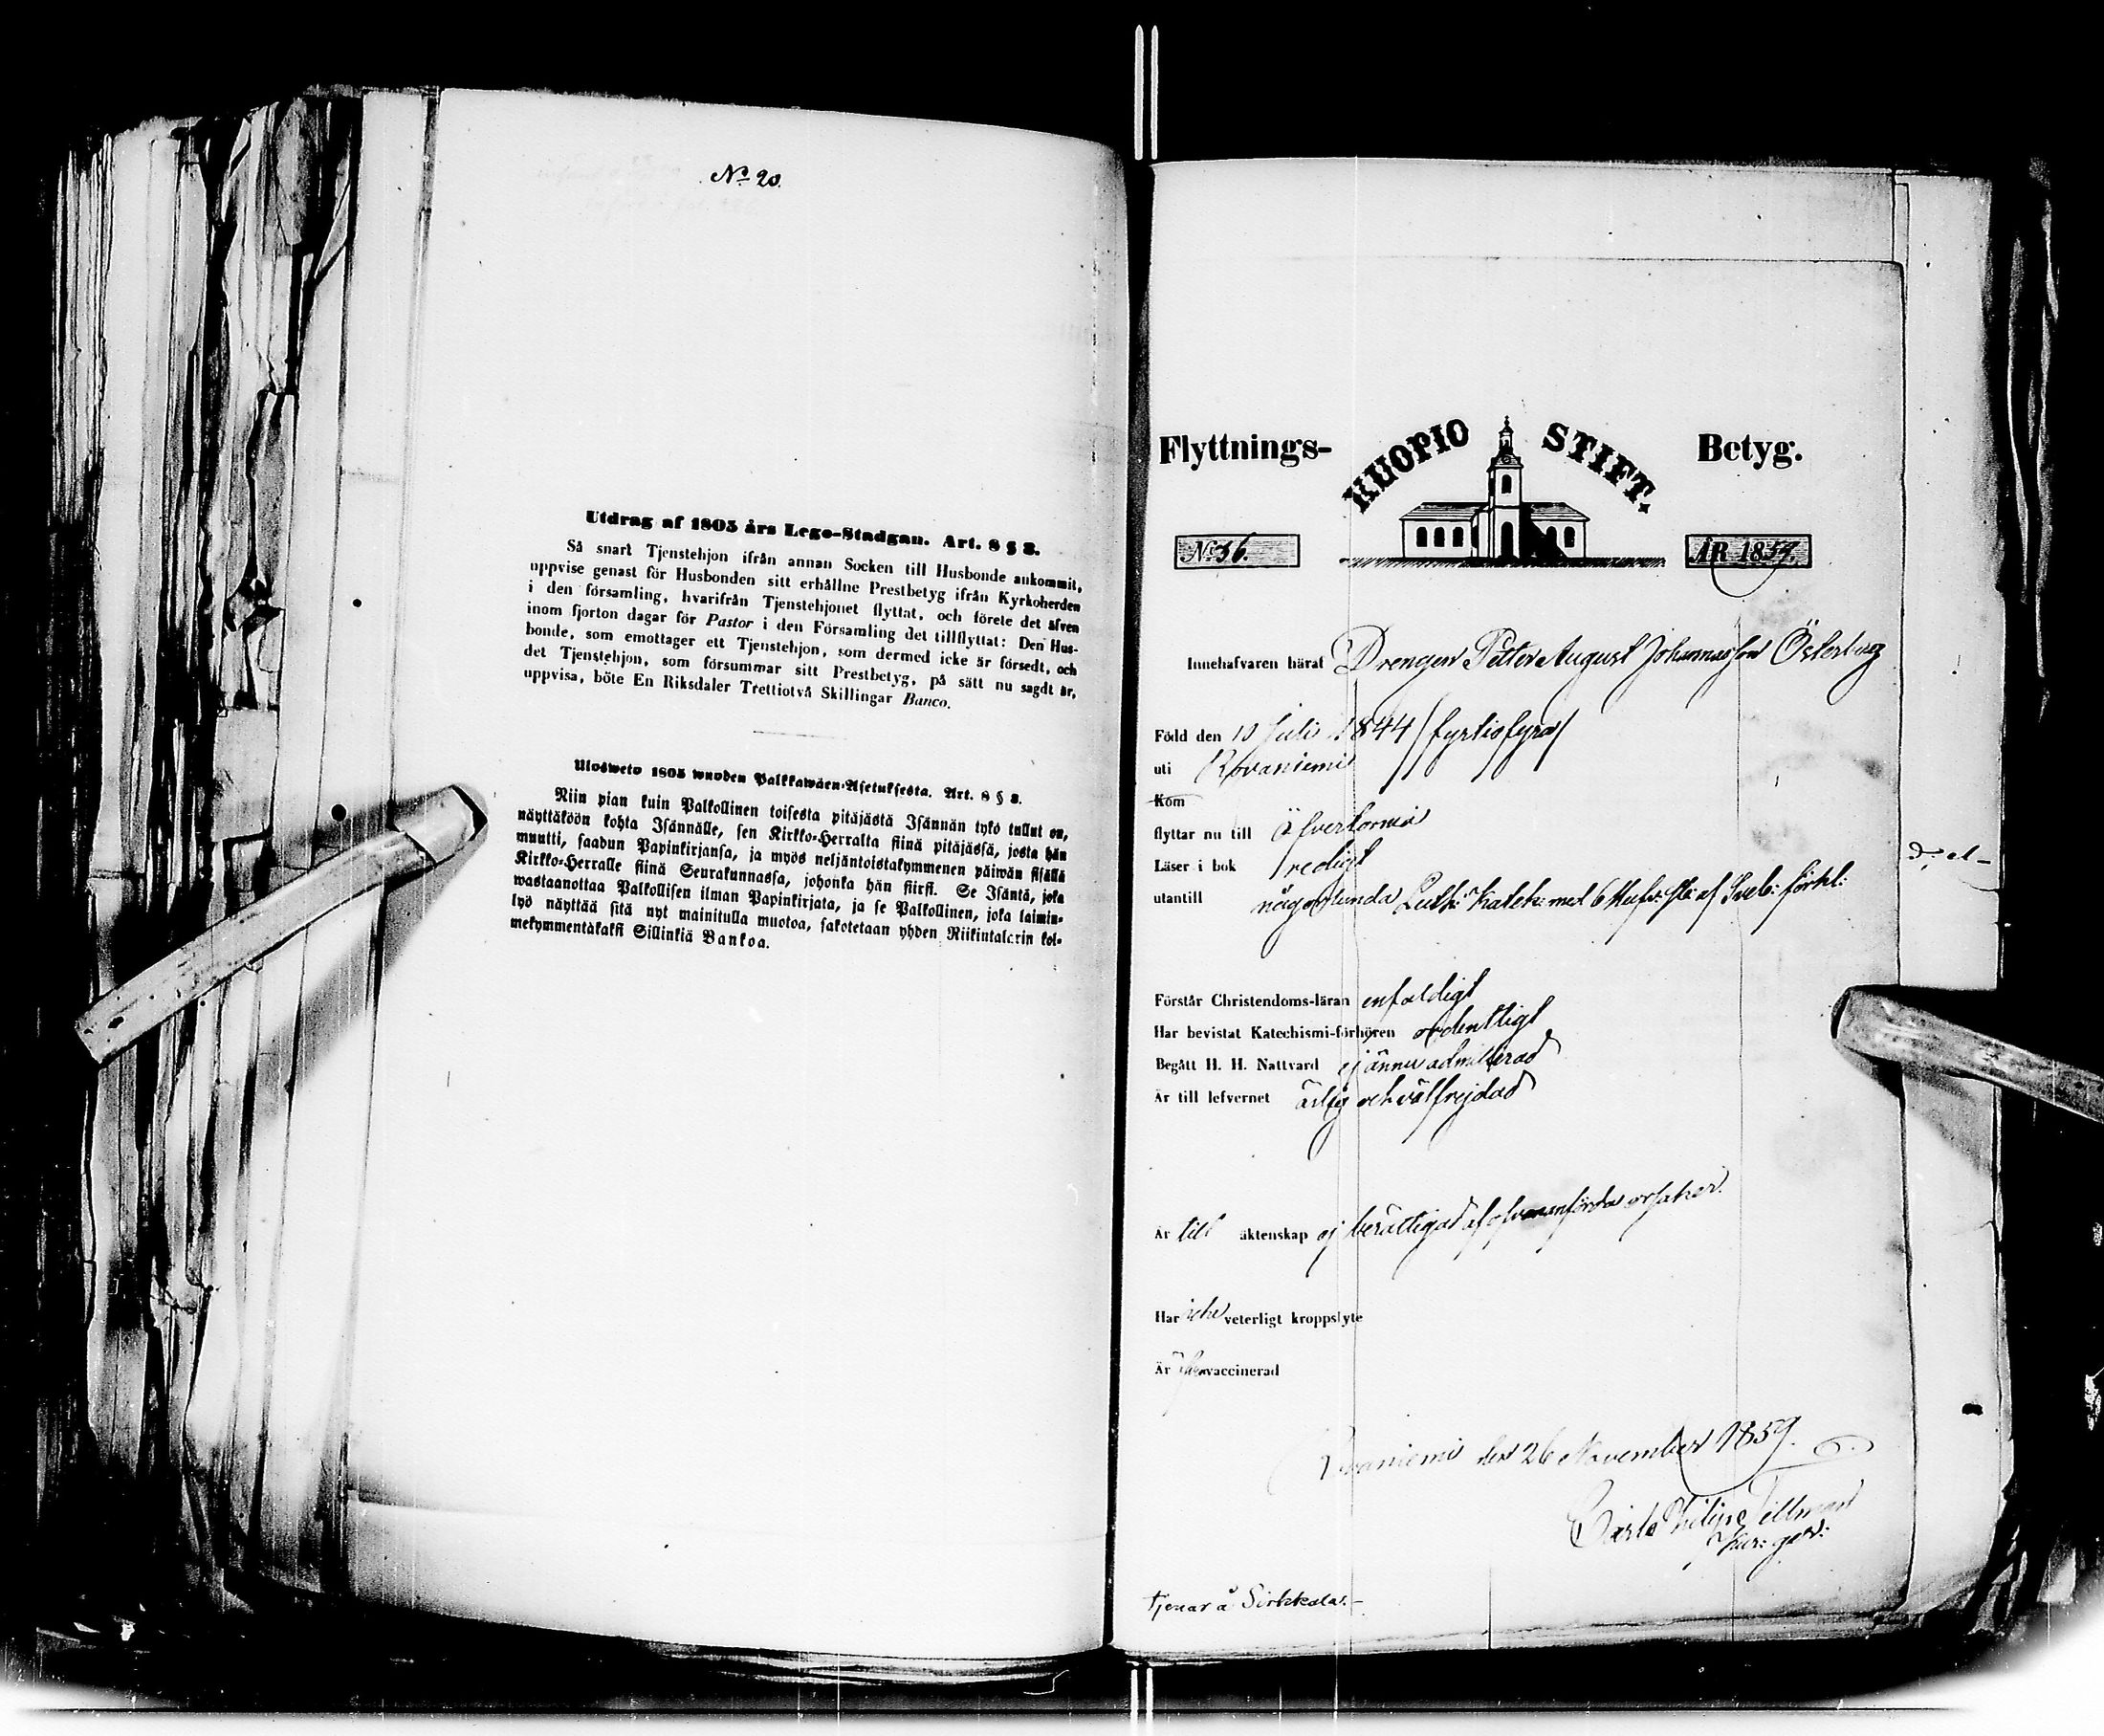 No 20.
Utdrag af 1805 års Lego-Stadgan. Art. 8 § 3.
Så snart Tjenstehjon ifrån annan Socken till Husbonde ankommit,
uppvise genast för Husbonden sitt erhållne Prestbetyg ifrån Kyrkoherden
i den församling, hvarifrån Tjenstehjonet flyttat, och förete det äfven
inom fjorton dagar för Pastor i den Församling det tillflyttat: Den Hus-
bonde, som emottager ett Tjenstehjon, som dermed icke är försedt, och
det Tjenstehjon, som försummar sitt Prestbetyg, på sätt nu sagdt är,
uppvisa, böte En Riksdaler Trettiotvå Skillingar Banco.
Ulosweto 1805 wuoden Palkkawäen-Asetuksesta. Art. 8 § 3.
Niin pian kuin Palkollinen toisesta pitäjästä Isännän tykö tullut on,
näyttäköön kohta Isännälle, sen Kirkko-Herralta siinä pitäjässä, josta hän
muutti, saadun Papinkirjansa, ja myös neljäntoistakymmenen päiwän sisällä
Kirkko-Herralle siinä Seurakunnassa, johonka hän siirsi. Se Isäntä, joka
wastaanottaa Palkollisen ilman Papinkirjata, ja se Palkollinen, joka laimin-
lyö näyttää sitä nyt mainitulla muotoa, sakotetaan yhden Riikintalerin kol-
mekymmentäkaksi Sillinkiä Bankoa.
Flyttnings- KUOPIO STIFT. Betyg.
No 36. ÅR 1859.
Innehafvaren häraf Drengen Petter August Johannesson Österberg
Född den 10 Juli 1844 /fyrtiofyra/
uti Rovaniemi
Kom
flyttar nu till Öfvertorneå
Läser i bok redigt
utantill någorlunda Luth: Katek: med 6 Hufv: St: af Sveb: förkl:
Förstår Christendoms-läran enfaldigt
Har bevistat Katechismi-förhören ordentligt
Begått H. H. Nattvard ej ännu admitterad
Är till lefvernet ärlig och välfrejdad
Är till äktenskap ej berättigad af ofvananförda orsaker.
Har icke veterligt kroppslyte
Är vaccinerad
Rovaniemi den 26 November 1859.
Carl Philip Tillman
tjenar å Sirkkala.-